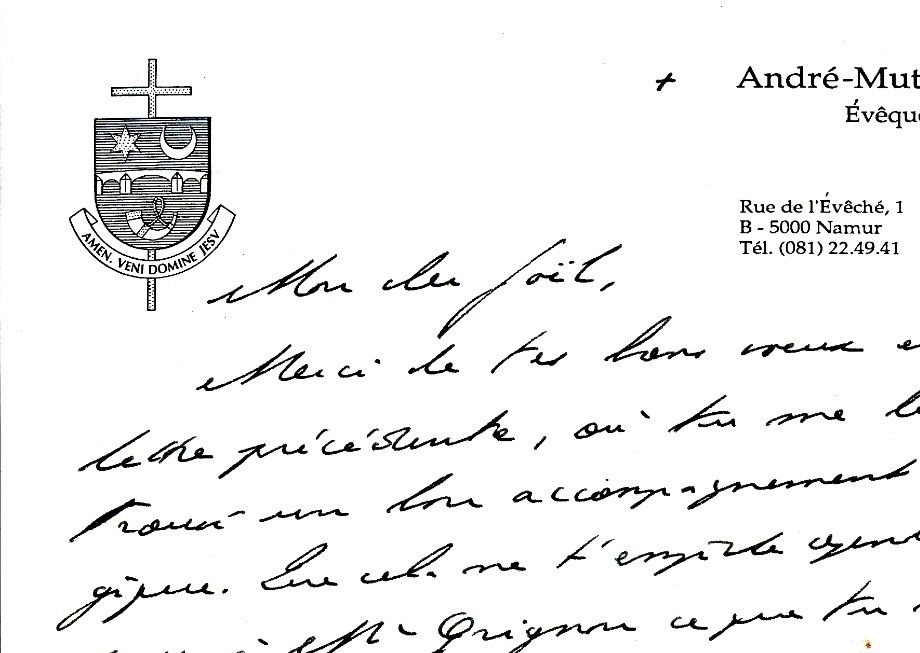 + André-Mut
Évêqu
Rue de l'Évêché, 1
B - 5000 Namur
Tél. (081) 22.49.41
AMEN. VENI DOMINE JESV
Mon cher Joël,
Merci de tes bons voeux e
lettre précédente, où tu me
trouvé un bon accompagnement
Que cela ne t'empêche
à Mr Grignon ce que tu